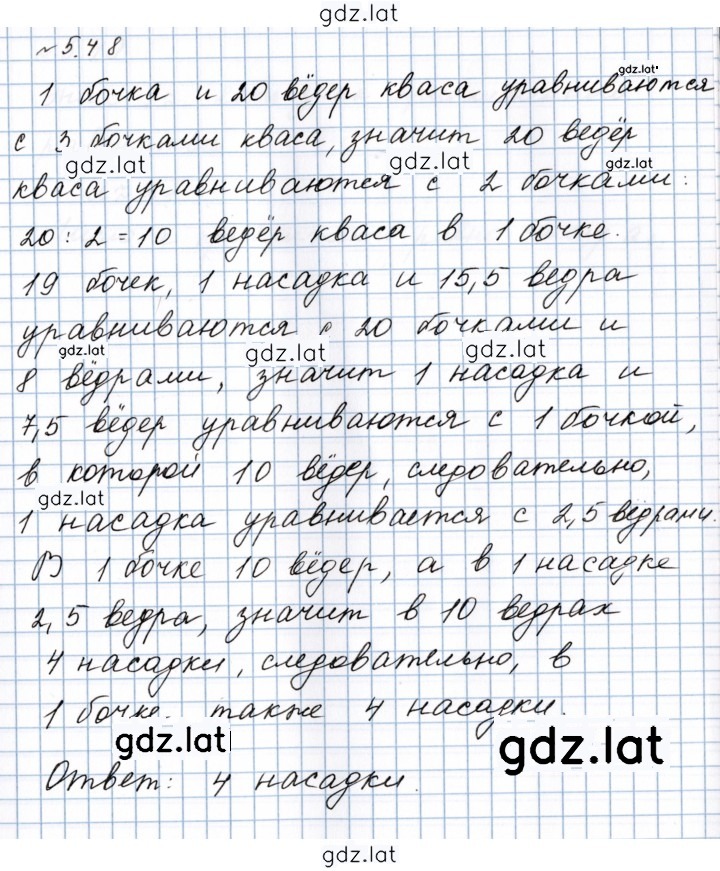 gdz.lat
№ 5.48
gdz.lat
1 бочка и 20 вёдер кваса уравниваются
с 3 бочками кваса, значит 20 ведёр
gdz.lat gdz.lat gdz.lat
кваса уравниваются с 2 бочками:
20 : 2 = 10 ведёр кваса в 1 бочке.
19 бочек, 1 насадка и 15,5 ведра
уравниваются с 20 бочками и
gdz.lat gdz.lat gdz.lat
8 вёдрами, значит 1 насадка и
7,5 вёдер уравниваются с 1 бочкой,
в которой 10 вёдер, следовательно,
gdz.lat
1 насадка уравнивается с 2,5 вёдрами.
В 1 бочке 10 вёдер, а в 1 насадке
2,5 ведра, значит в 10 ведрах
4 насадки, следовательно, в
1 бочке также 4 насадки.
gdz.lat gdz.lat
Ответ: 4 насадки.
gdz.lat